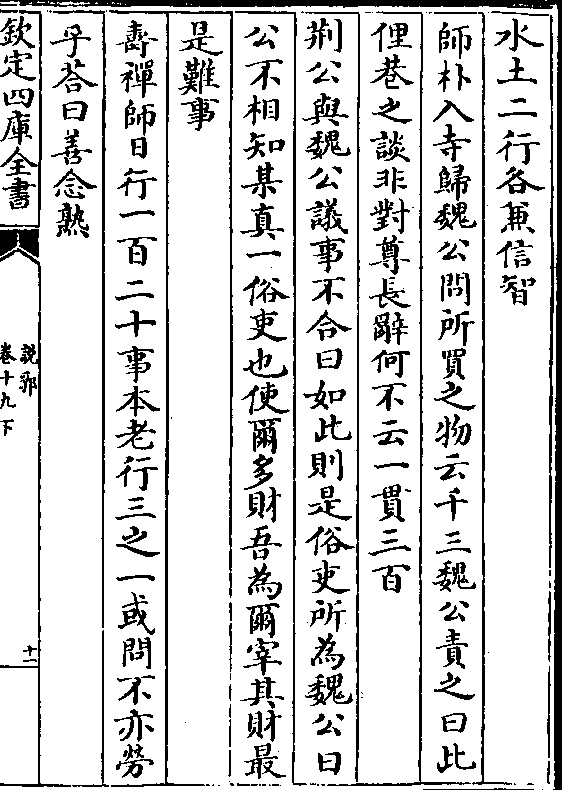 水土二行各兼信智
師朴入寺歸魏公問所買之物云千三魏公責之曰此
俚巷之談非對尊長辭何不云一貫三百
荆公與魏公議事不合曰如此則是俗吏所為魏公曰
公不相知某真一俗吏也使爾多財吾為爾宰其財最
是難事
壽禪師日行一百二十事本老行三之一或問不亦勞
乎荅曰善念熟
欽定四庫全書
說郛
卷十九下
十二